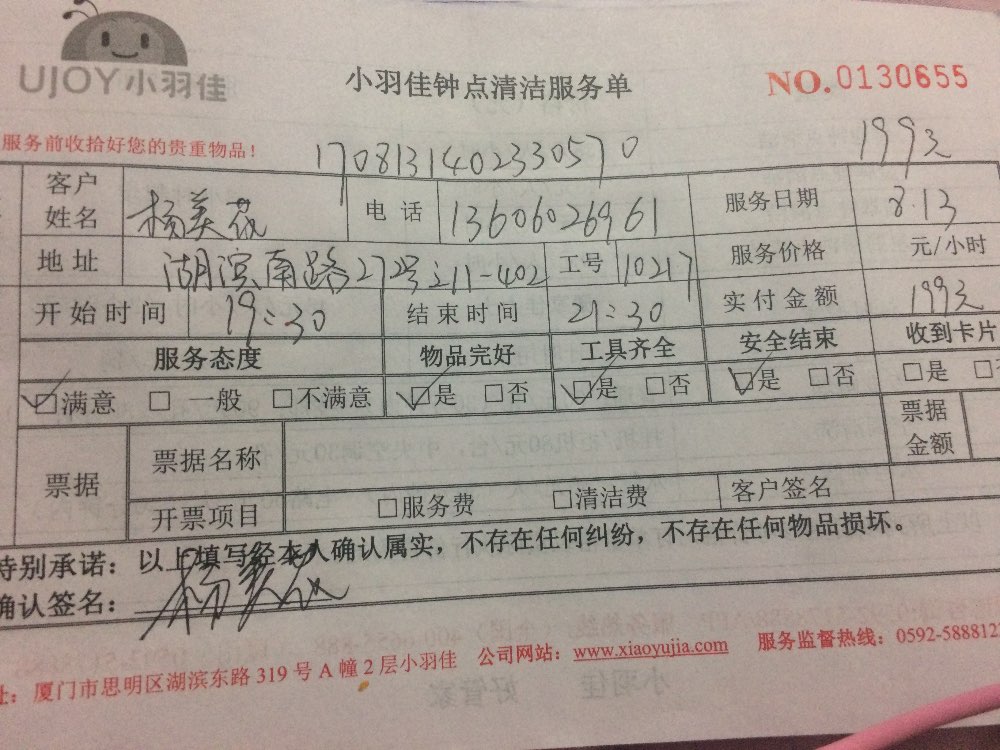 UJOY小羽佳
小羽佳钟点清洁服务单
NO.0130655
服务前收拾好您的贵重物品！
1708131402330570
199元
客户姓名 杨美茂 电话 13606026961 服务日期 8.13
地址 湖滨南路272号之11-402 工号 10217 服务价格 元/小时
开始时间 19:30 结束时间 21:30 实付金额 199元
服务态度 物品完好 工具齐全 安全结束 收到卡片
☑满意 □一般 □不满意 ☑是 □否 ☑是 □否 ☑是 □否 □是 □
票据 票据名称 票据金额
开票项目 □服务费 □清洁费 客户签名
特别承诺：以上填写经本人确认属实，不存在任何纠纷，不存在任何物品损坏。
确认签名：杨美茂
址：厦门市思明区湖滨东路319号A幢2层小羽佳 公司网站：www.xiaoyujia.com 服务监督热线：0592-5888812